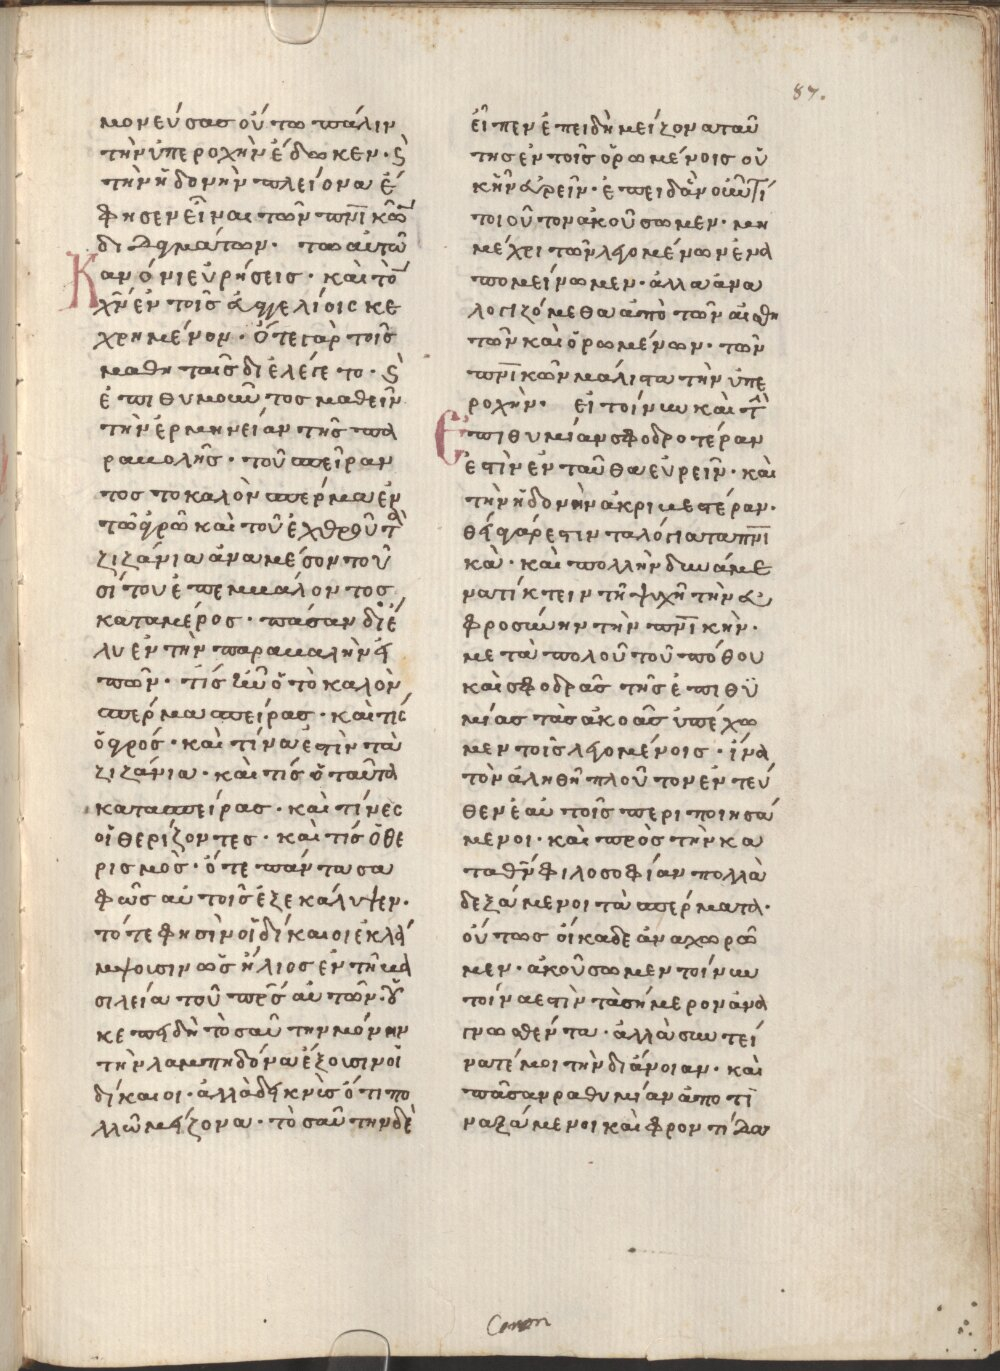 87.
μονεύσας οὕτω πάλιν
τὴν ὑπεροχὴν ἔδωκεν· ϛ̀
τὴν ἡδονὴν πλείονα ἔ
φησεν εἶναι τῶν πνικῶ
διδαγμάτων. τῶ αὐτῶ
Κανόνι εὑρήσεις· καὶ τὸ
χν ἐν τοῖς εὐαγγελίοις κε
χρημένον· ὅτε γὰρ τοῖς
μαθηταῖς διελέγετο· ϛ̀
ἐπιθυμοῦντος μαθεῖν
τὴν ἑρμηνείαν τῆς πα
ραβολῆς· τοῦ σπείραν
τος τὸ καλὸν σπέρμα ἐν
τῶ ἀγρῶ καὶ τοῦ ἐχθροῦ τὰ
ζιζάνια ἀναμέσον τοῦ
σίτου ἐπεμβαλόντος
καταμέρος· πᾶσαν διέ
λυεν τὴν παραβολὴν εἰ
πών· τίς ἦν ὁ τὸ καλὸν
σπέρμα σπείρας· καὶ τίς
ὁ ἀγρός· καὶ τίνα ἐστὶν τὰ
ζιζάνια· καὶ τίς ὁ ταῦτα
κατασπείρας· καὶ τίνες
οἱ θερίζοντες· καὶ τίς ὁ θε
ρισμὸς· ὅτε πάντα σα
φῶς αὐτοῖς ἐξεκάλυψεν·
τότε φησὶν οἱ δίκαιοι ἐκλά
μψουσιν ὡς ἥλιος ἐν τῆ βα
σιλεία τοῦ πρς αὐτῶν· οὐ
κ ἐπειδὴ τοσαύτην μόνην
τὴν λαμπηδόνα ἕξουσιν οἱ
δίκαιοι· ἀλλὰ δεικνὺς ὅτι πο
λλῶ μείζονα· τοσαύτην δὲ
εἶπεν ἐπειδὴ μείζονα ταύ
της ἐν τοῖς ὁρωμένοις οὐ
κ ἦν εὑρεῖν· ἐπειδὰν οὖν τί
τοιοῦτον ἀκούσωμεν· μη
μέχρι τῶν λεγομένων ἐνα
πομείνωμεν· ἀλλα ἀνα
λογιζόμεθα ἀπὸ τῶν αἰσθη
τῶν καὶ ὁρωμένων· τῶν
πνικῶν μάλιστα τὴν ὑπε
ροχὴν. εἰ τοίνυν καὶ τὴ
Ἐπιθυμίαν σφοδροτέραν
ἐστὶν ἐνταῦθα εὑρεῖν· καὶ
τὴν ἡδονὴν ἀκριβεστέραν·
θεῖα γάρ ἐστιν τα λόγια τα πνι
κὰ· καὶ πολλὴν δυνάμε
να τίκτειν τῆ ψυχῆ τὴν εὐ
φροσύνην τὴν πνικὴν·
μετὰ πολοῦ τοῦ πόθου
καὶ σφοδρᾶς τῆς ἐπιθϋ
μίας τὰς ἀκοὰς ὑπέχω
μεν τοῖς λεγομένοις· ἵνα
τὸν ἀληθῆ πλοῦτον ἐντεύ
θεν ἑαυτοῖς περιποιησά
μενοι· καὶ πρὸς τὴν κα
τα θν φιλοσοφίαν πολλὰ
δεξάμενοι τὰ σπέρματα·
οὕτως οἴκαδε ἀναχωρῶ
μεν· ἀκούσωμεν τοίνυν
τοίνα ἐστὶν τὰ σήμερον ἀνα
γνωσθέντα· ἀλλὰ συντεί
νατέ μοι τὴν διάνοιαν· καὶ
πᾶσαν ραθυμίαν ἀποτϊ
ναξάμενοι καὶ φροντίδασ
Canon